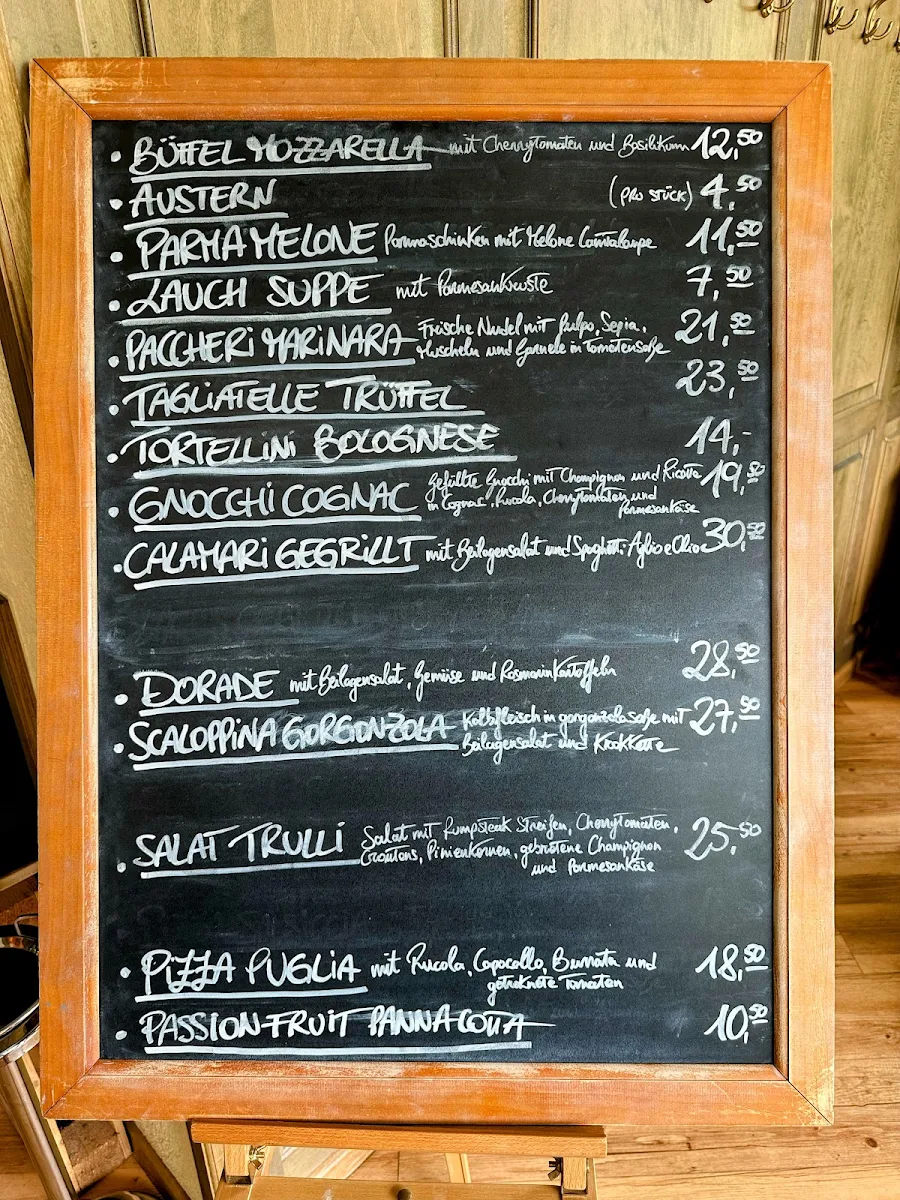 • BÜFFEL MOZZARELLA mit Cherrytomaten und Basilikum 12,50
• AUSTERN (PRO STÜCK) 4,50
• PARMA MELONE Parmaschinken mit Melone Cantaloupe 11,50
• LAUCH SUPPE mit Parmesankruste 7,50
• PACCHERI MARINARA Frische Nudel mit Pulpo, Sepia, 21,50
Muscheln und Garnele in Tomatensoße
• TAGLIATELLE TRÜFFEL 23,50
• TORTELLINI BOLOGNESE 14,-
• GNOCCHI COGNAC gefüllte Gnocchi mit Champignon und Ricotta 19,50
in Cognac, Rucola, Cherrytomaten und
Parmesankäse
• CALAMARI GEGRILLT mit Beilagensalat und Spaghetti Aglio e Olio 30,50
• DORADE mit Beilagensalat, Gemüse und Rosmarinkartoffeln 28,50
• SCALOPPINA GORGONZOLA Kalbfleisch in gorgonzolasoße mit 27,50
Beilagensalat und Krokkette
• SALAT TRULLI Salat mit Rumpsteak Streifen, Cherrytomaten, 25,50
Croutons, Pinienkernen, gebratene Champignon
und Parmesankäse
• PIZZA PUGLIA mit Rucola, Capocollo, Burrata und 18,50
getroknete Tomaten
• PASSION-FRUIT PANNA COTTA 10,50